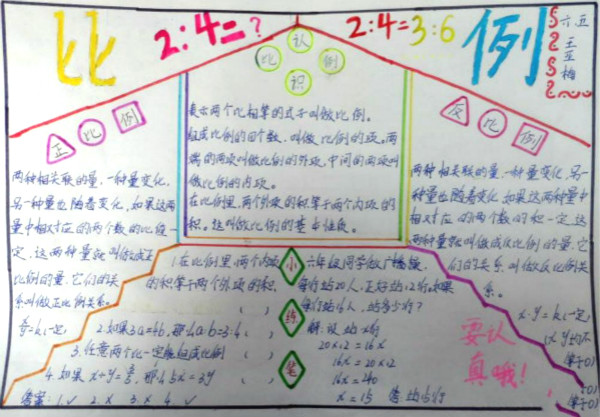 比
2:4=?
2:4=3:6
例
六五
认
比 例
识
表示两个比相等的式子叫做比例。
组成比例的四个数,叫做比例的项。两
端的两项叫做比例的外项,中间的两项叫
做比例的内项。
在比例里,两个外项的积等于两个内项的
积。这叫做比例的基本性质。
正比例
两种相关联的量,一种量变化,
另一种量也随着变化,如果这两种
量中相对应的两个数的比值一
定,这两种量就叫做成正
比例的量,它们的关
系叫做正比例关系。
反比例
两种相关联的量,一种量变化,另一
种量也随着变化,如果这两种量中
相对应的两个数的积一定,这
两种量就叫做成反比例的量,它
们的关系叫做反比例关
系。
x·y=k(一定)
小练笔
1.在比例里,两个内项
的积等于两个外项的积。( )
2.如果3a=4b,那么a:b=3:4。( )
3.任意两个比一定能组成比例( )
4.如果 ,那么5x=3y( )
答案:1.√ 2.× 3.× 4.√
六年级同学做广播操,
每行站20人,正好站12行,如果
每行站16人,站多少行?
解:设站x行
20×12=16x
16x=20×12
16x=240
x=15
要认
真哦!